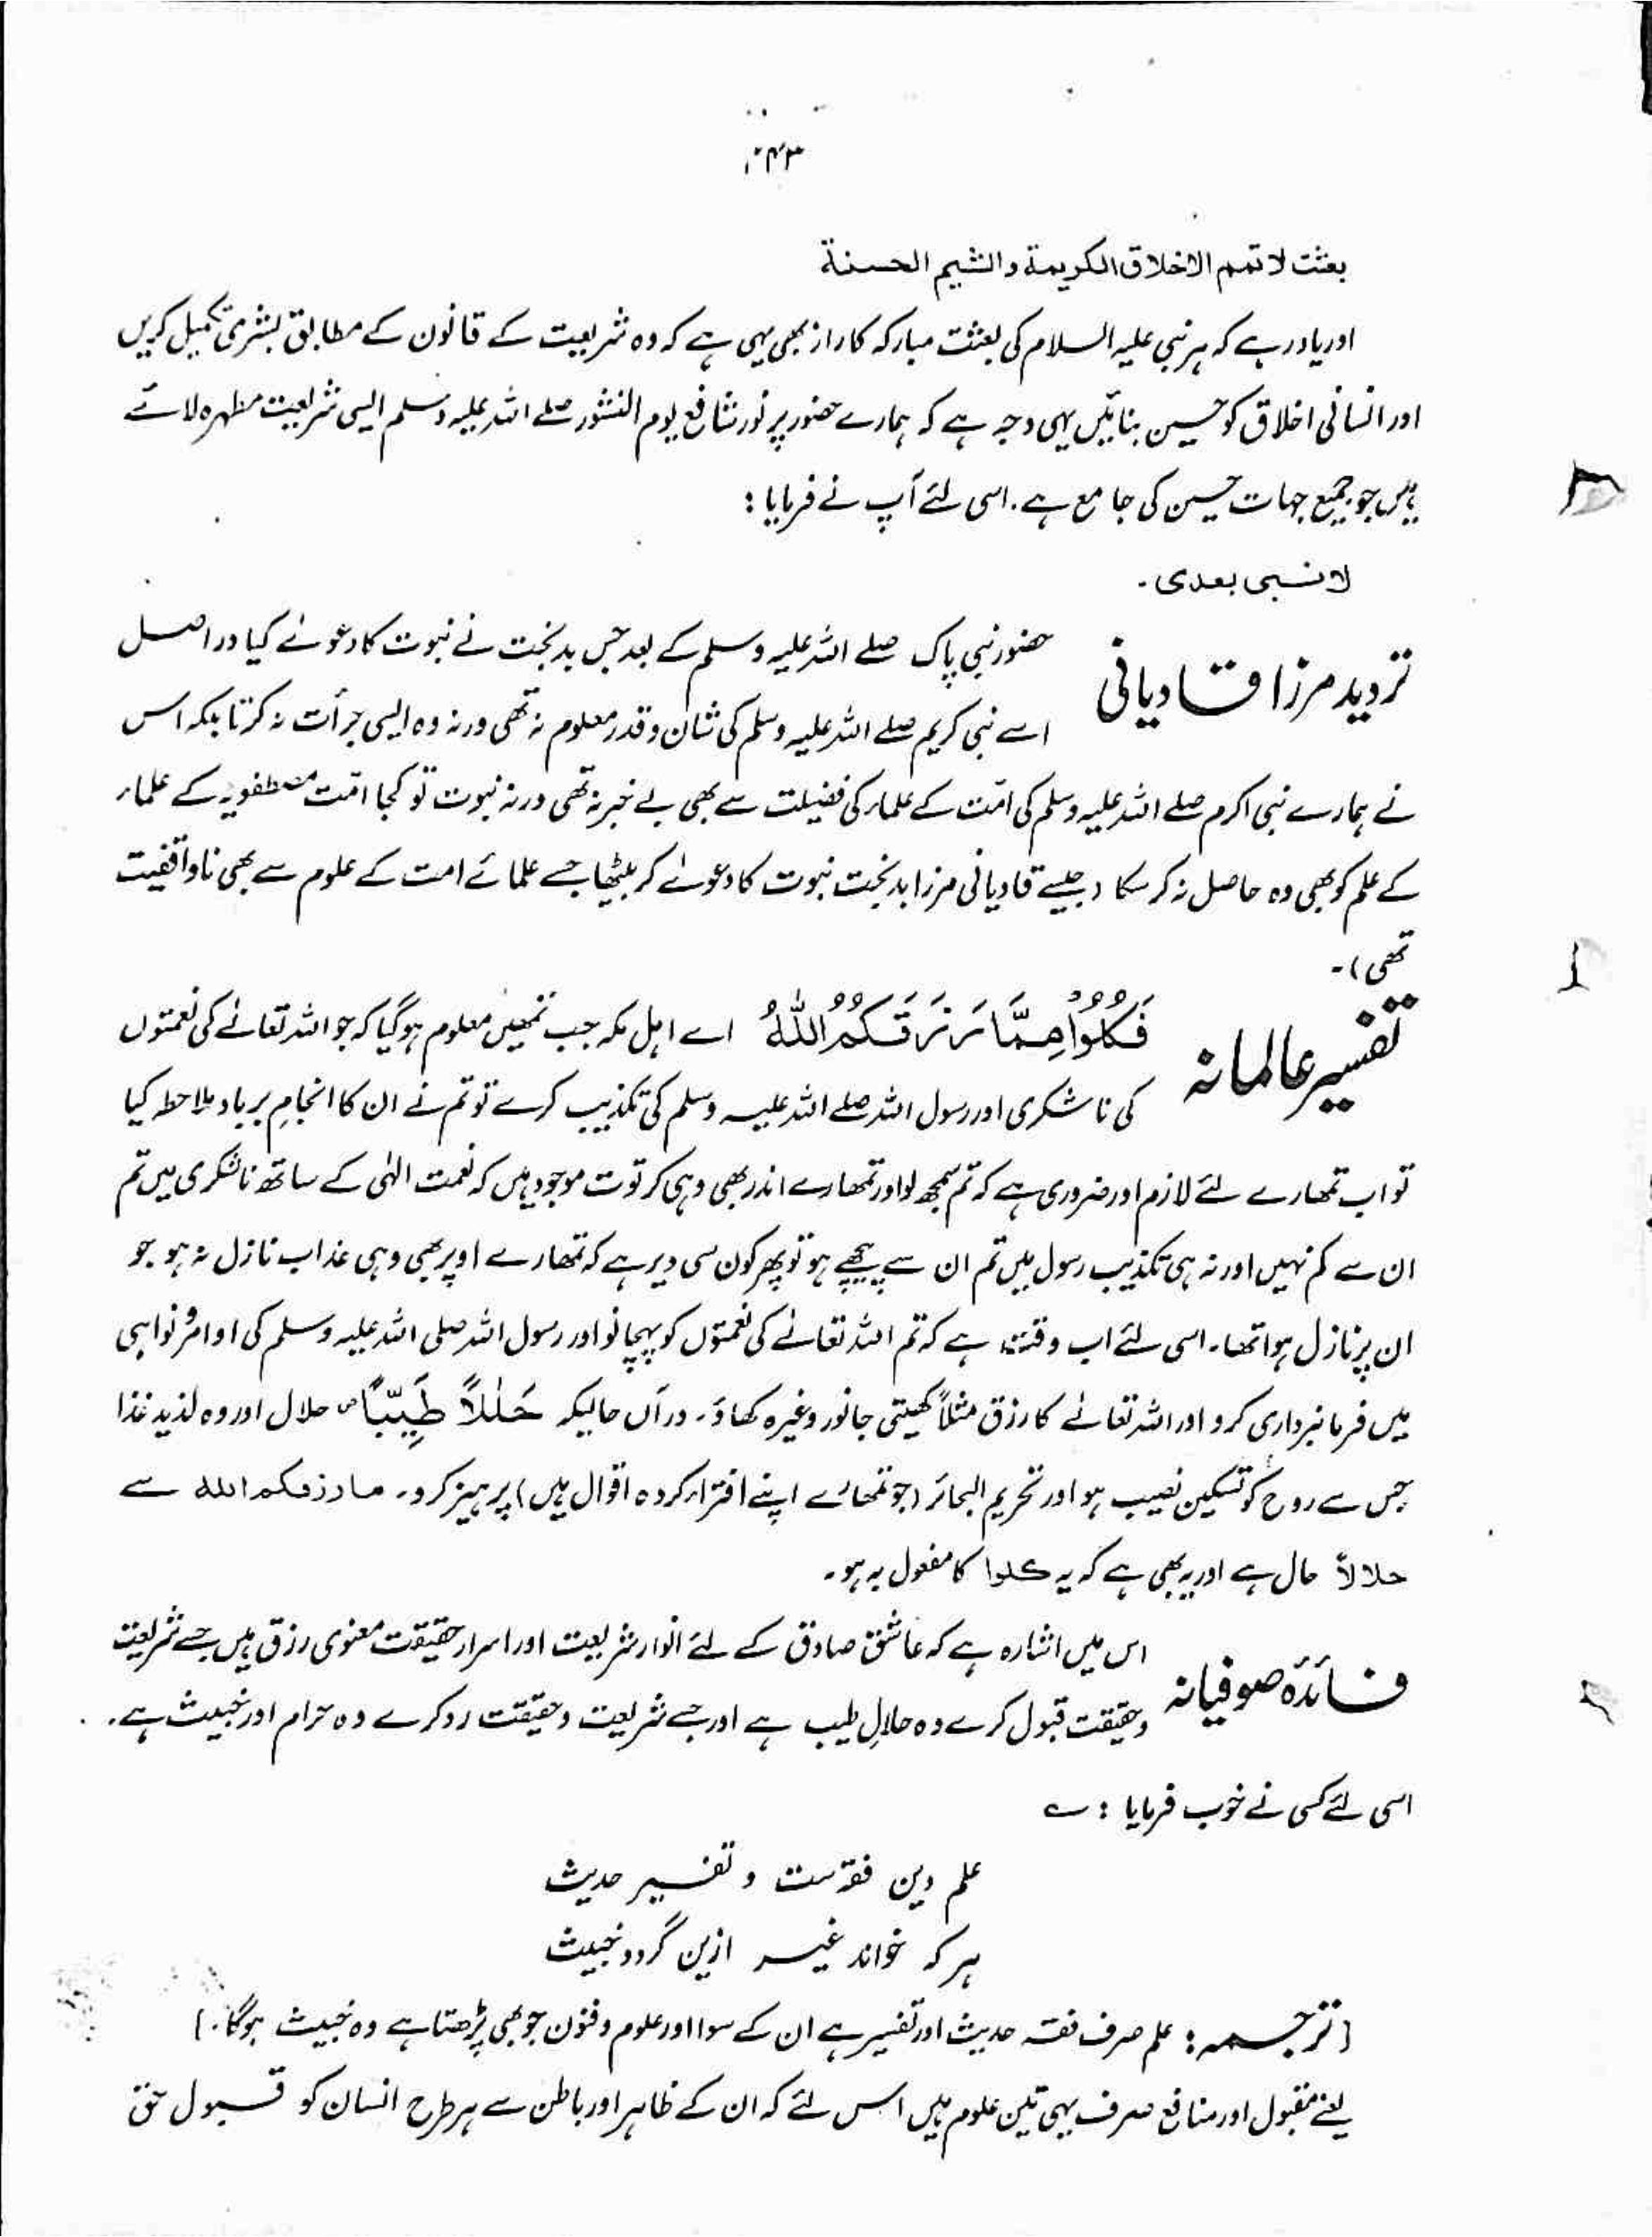 ۲۴۳
بعثت لا تمم الاخلاق الکریمة والشیم الحسنة
اور یاد رہے کہ ہر نبی علیہ السلام کی بعثت مبارکہ کا راز بھی یہی ہے کہ وہ شریعت کے قانون کے مطابق بشری تکمیل کریں
اور انسانی اخلاق کو حسین بنائیں یہی وجہ ہے کہ ہمارے حضور پر نور شافع یوم النشور صلے اللہ علیہ وسلم ایسی شریعت مطہرہ لائے
ہیں جو جمیع جہات حسین کی جامع ہے۔ اسی لئے آپ نے فرمایا :
لا نبی بعدی۔
تردید مرزا قادیانی
حضور نبی پاک صلے اللہ علیہ وسلم کے بعد جس بدبخت نے نبوت کا دعوےٰ کیا در اصل
اسے نبی کریم صلے اللہ علیہ وسلم کی شان و قدر معلوم نہ تھی ورنہ وہ ایسی جرأت نہ کرتا بلکہ اس
نے ہمارے نبی اکرم صلے اللہ علیہ وسلم کی امّت کے علماء کی فضیلت سے بھی بے خبر نہ تھی ورنہ نبوت تو کجا امّت مصطفویہ کے علماء
کے علم کو بھی وہ حاصل نہ کر سکا (جیسے قادیانی مرزا بدبخت نبوت کا دعوےٰ کر بیٹھا جسے علمائے امت کے علوم سے بھی ناواقفیت
تھی)۔
تفسیر عالمانہ
فَكُلُوْا مِمَّا رَزَقَكُمُ اللّٰهُ اے اہل مکہ جب تمھیں معلوم ہوگیا کہ جو اللہ تعالےٰ کی نعمتوں
کی ناشکری اور رسول اللہ صلے اللہ علیہ وسلم کی تکذیب کرے تو تم نے ان کا انجامِ برباد ملاحظہ کیا
تو اب تمھارے لئے لازم اور ضروری ہے کہ تم سمجھ لو اور تمھارے اندر بھی وہی کرتوت موجود ہیں کہ نعمت الہٰی کے ساتھ ناشکری میں تم
ان سے کم نہیں اور نہ ہی تکذیب رسول میں تم ان سے پیچھے ہو تو پھر کون سی دیر ہے کہ تمھارے اوپر بھی وہی عذاب نازل نہ ہو جو
ان پر نازل ہوا تھا۔ اسی لئے اب وقت ہے کہ تم اللہ تعالےٰ کی نعمتوں کو پہچانو اور رسول اللہ صلی اللہ علیہ وسلم کی اوامر و نواہی
میں فرمانبرداری کرو اور اللہ تعالےٰ کا رزق مثلاً کھیتی جانور وغیرہ کھاؤ۔ در آں حالیکہ حَلٰلًا طَيِّبًا ص حلال اور وہ لذیذ غذا
جس سے روح کو تسکین نصیب ہو اور تحریم البحائر (جو تمھارے اپنے افتراء کردہ اقوال ہیں) پرہیز کرو۔ ما رزقکم اللہ سے
حلالاً حال ہے اور یہ بھی ہے کہ یہ کلوا کا مفعول بہ ہو۔
فائدہ صوفیانہ
اس میں اشارہ ہے کہ عاشق صادق کے لئے انوار شریعت اور اسرار حقیقت معنوی رزق ہیں جسے شریعت
و حقیقت قبول کرے وہ حلالِ طیب ہے اور جسے شریعت و حقیقت رد کرے وہ حرام اور خبیث ہے۔
اسی لئے کسی نے خوب فرمایا : ؎
علم دین فقہ ست و تفسیر حدیث
ہر کہ خواند غیر ازین گردد خبیث
(ترجمہ: علم صرف فقہ حدیث اور تفسیر ہے ان کے سوا اور علوم و فنون جو بھی پڑھتا ہے وہ خبیث ہوگا۔)
یعنے مقبول اور منافع صرف یہی تین علوم ہیں اس لئے کہ ان کے ظاہر اور باطن سے ہر طرح انسان کو قبول حق